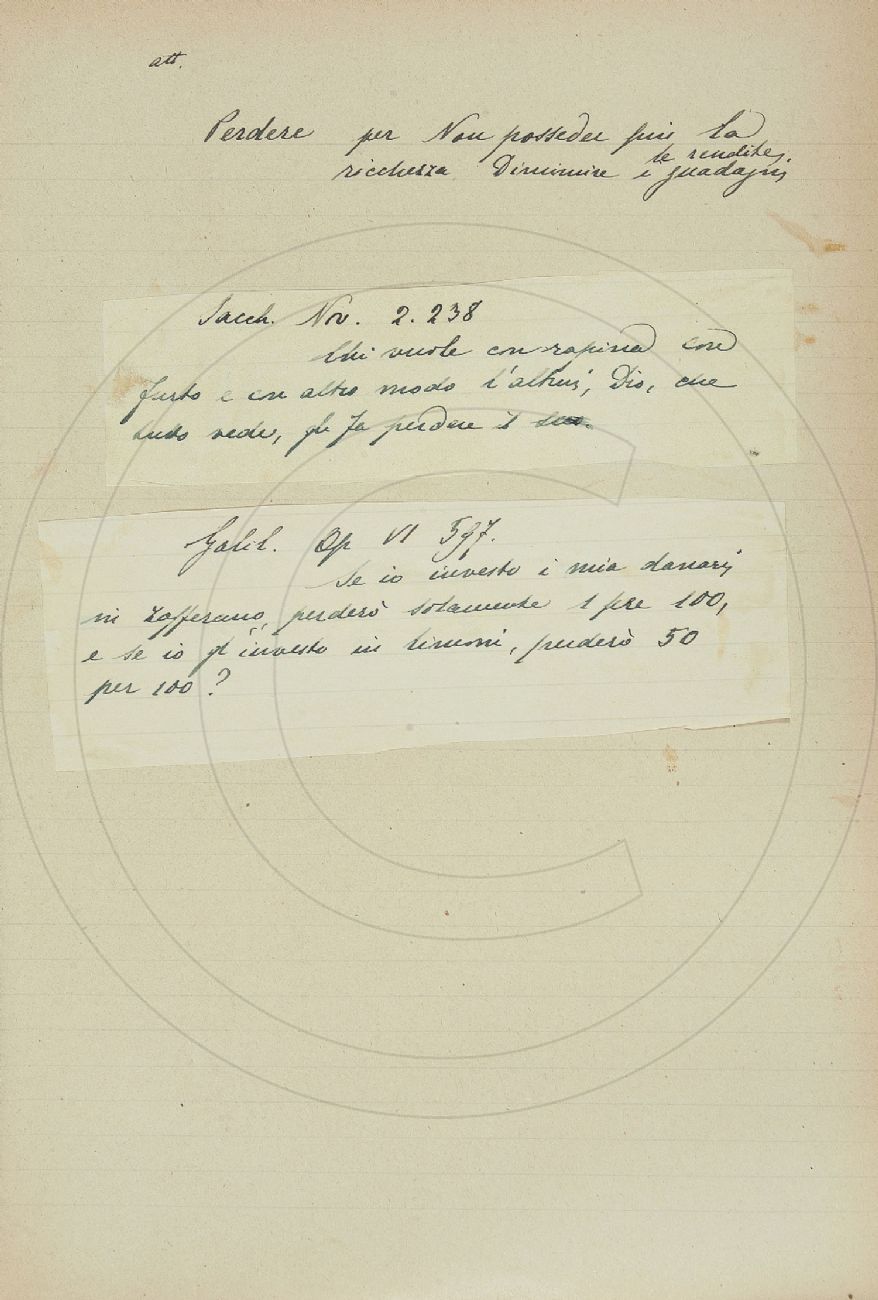 att.
Perdere per Non posseder più la
le rendite,
ricchezza Diminuire i guadagni
Sacch. Nov. 2. 238
Chi vuole con rapina con
furto e con altro modo l'altrui, Dio, che
tutto vede, gli fa perdere il suo.
Galil. Op VI 597.
Se io investo i mia danari
in zafferano, perderò solamente 1 per 100,
e se io gl'investo in limoni, perderò 50
per 100?